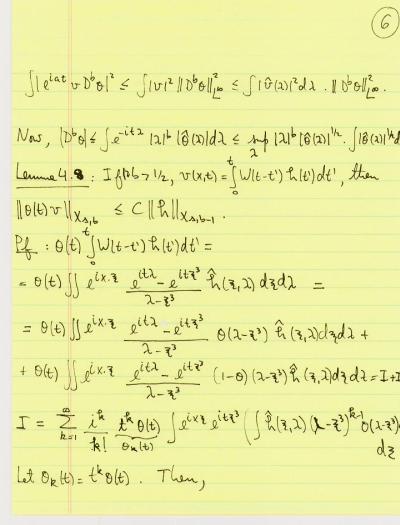 6
∫|e^{iat} v D^b θ|² ≤ ∫|v|² ‖D^b θ‖²_{L^∞} ≤ ∫|v̂(λ)|² dλ . ‖D^b θ‖²_{L^∞} .
Now, |D^b θ| ≤ ∫ e^{-itλ} |λ|^b |θ̂(λ)| dλ ≤ sup_λ |λ|^b |θ̂(λ)|^{1/2} . ∫|θ̂(λ)|^{1/2} d
Lemma 4.8 : If b > 1/2, v(x,t) = ∫_0^t W(t-t') h(t') dt', then
‖θ(t) v‖_{X_{s,b}} ≤ C ‖h‖_{X_{s,b-1}} .
Pf : θ(t) ∫_0^t W(t-t') h(t') dt' =
= θ(t) ∬ e^{ix.ξ} \frac{e^{itλ} - e^{itξ³}}{λ-ξ³} ĥ(ξ,λ) dξ dλ =
= θ(t) ∬ e^{ix.ξ} \frac{e^{itλ} - e^{itξ³}}{λ-ξ³} θ(λ-ξ³) ĥ(ξ,λ) dξ dλ +
+ θ(t) ∬ e^{ix.ξ} \frac{e^{itλ} - e^{itξ³}}{λ-ξ³} (1-θ)(λ-ξ³) ĥ(ξ,λ) dξ dλ = I + I
I = \sum_{k=1}^{∞} \frac{i^k}{k!} \underbrace{t^k θ(t)}_{θ_k(t)} ∫ e^{ixξ} e^{itξ³} (∫ ĥ(ξ,λ) (λ-ξ³)^{k-1} θ(λ-ξ³)
dξ
Let θ_k(t) = t^k θ(t) . Then,